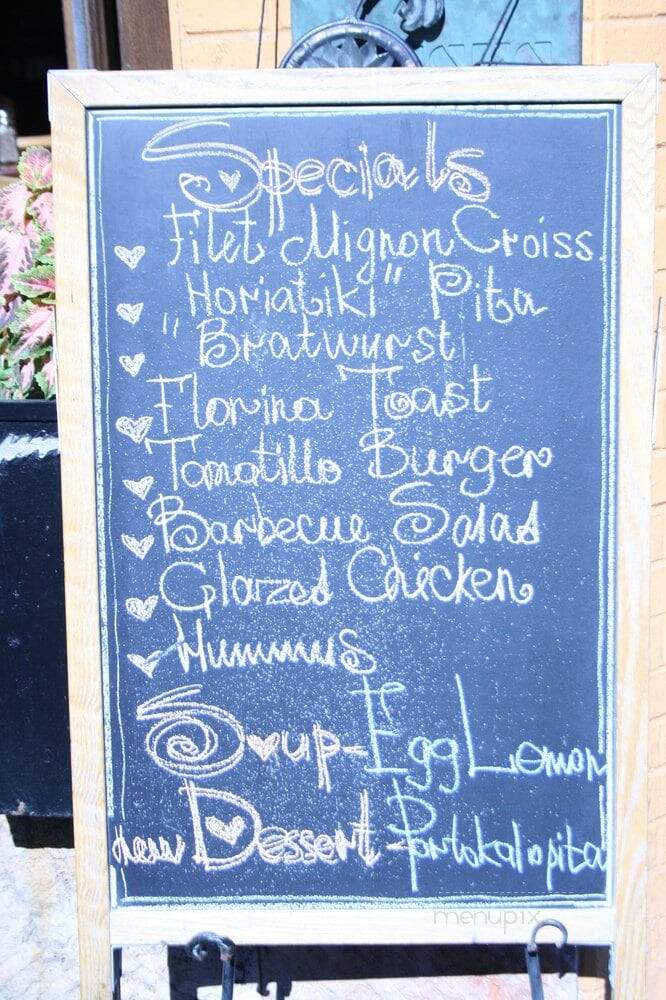 Specials
Filet Mignon Croiss.
"Horiatiki" Pita
Bratwurst
Florina Toast
Tomatillo Burger
Barbecue Salad
Glazed Chicken
Hummus
Soup-Egg Lemon
new Dessert-Portokalopita
menupix